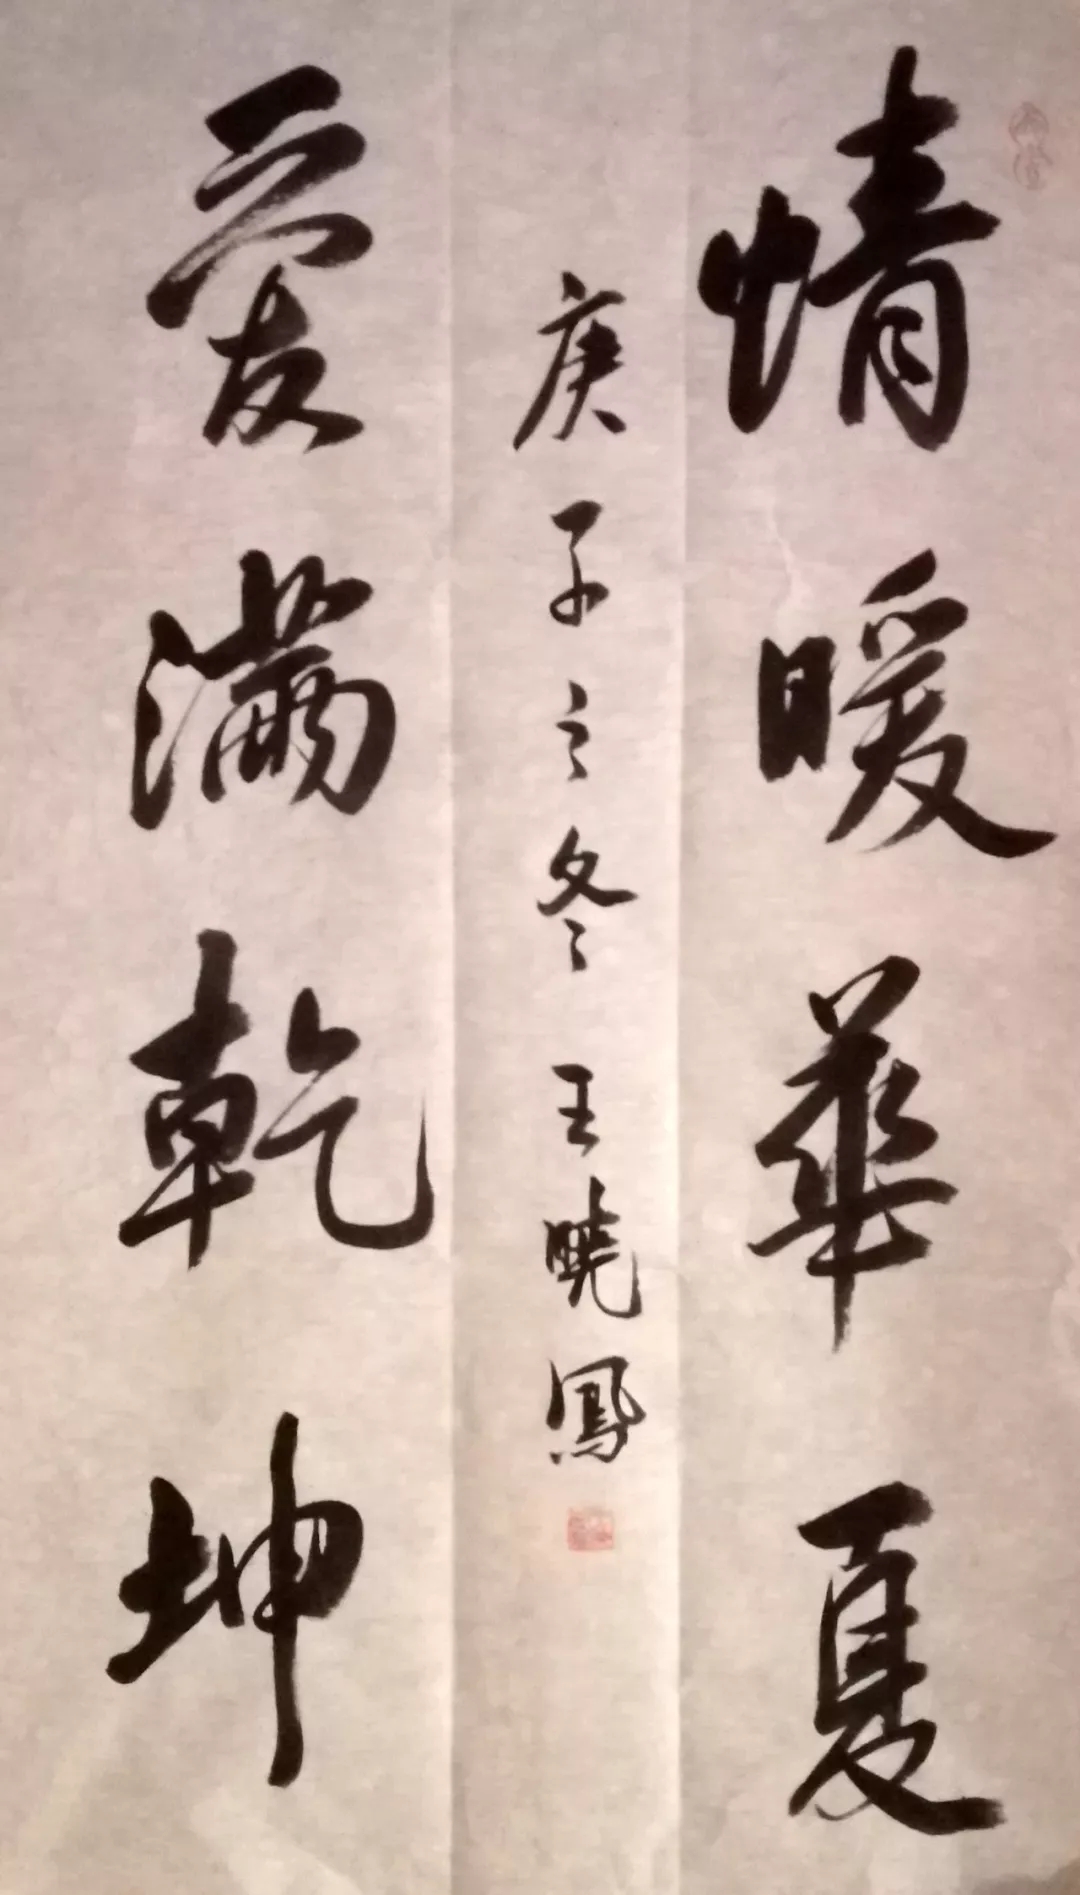 情暖華夏
愛滿乾坤
庚子之冬王曉鳳